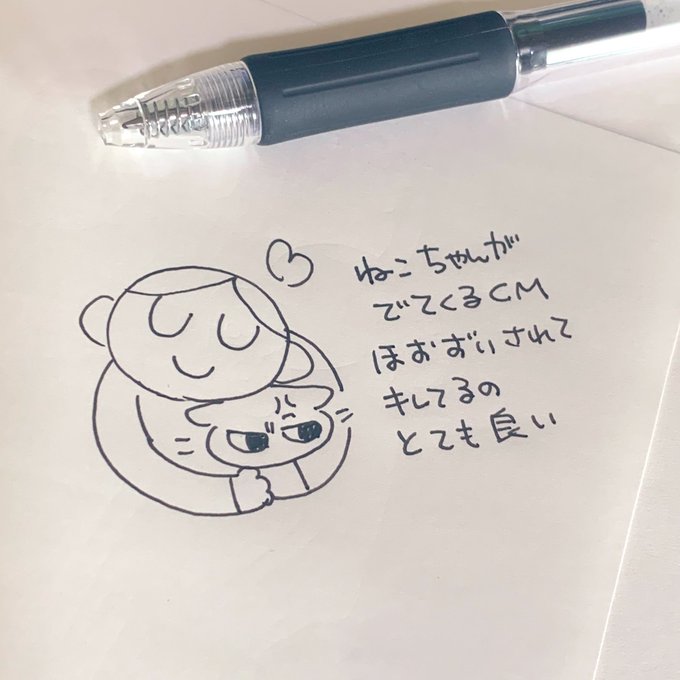 ねこちゃんが
でてくるCM
ほおずりされて
キレてるの
とても良い